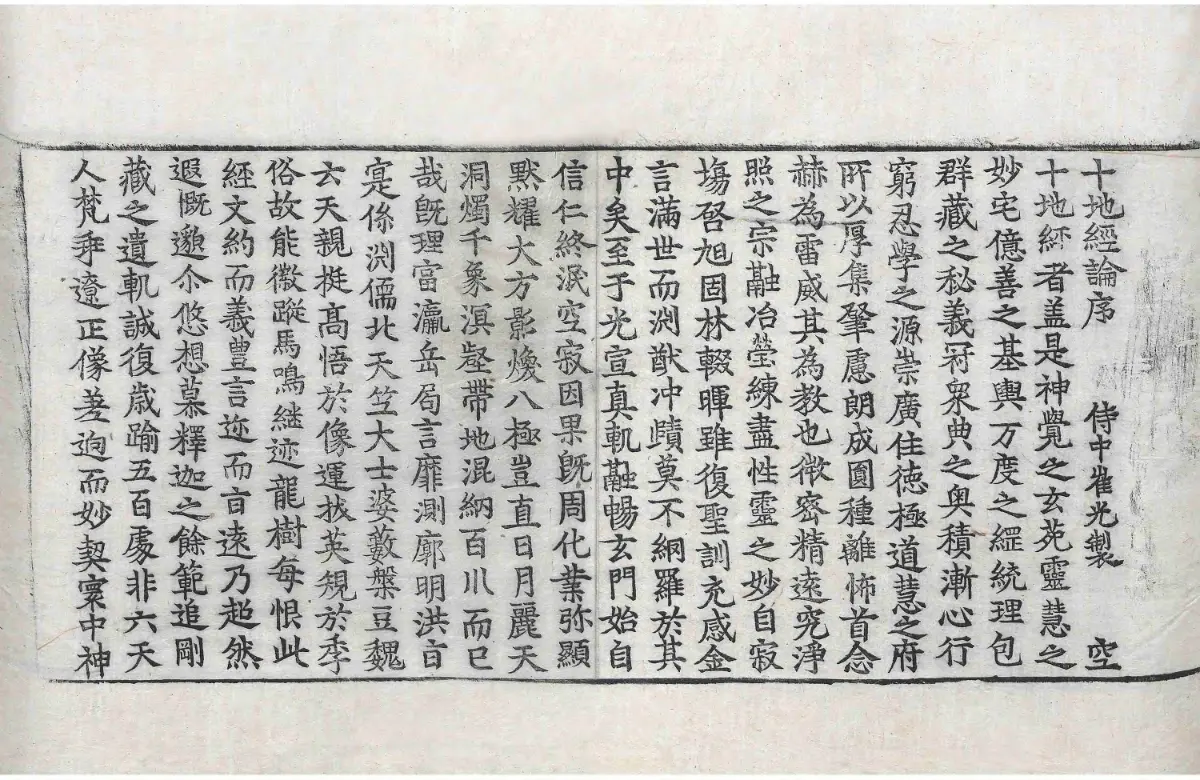 十地經論序 侍中崔光製 空
十地經者盖是神覺之玄苑靈慧之
妙宅億善之基輿万度之綖統理包
群藏之秘義冠衆典之奥積漸心行
窮忍學之源崇廣住徳極道慧之府
所以厚集肇慮朗成圓種離怖首念
赫為雷威其為教也微密精遠究淨
照之宗融冶瑩練盡性靈之妙自寂
塲啓旭固林輟暉雖復聖訓充感金
言滿世而淵猷冲賾莫不網羅於其
中矣至于光宣真軌融暢玄門始自
信仁終泯空寂因果既周化業弥顯
默耀大方影煥八極豈直日月麗天
洞燭千象溟壑帶地混納百川而已
哉既理富瀛岳局言靡測廓明洪旨
寔係淵儒北天竺大士婆藪槃豆魏
云天親挺髙悟於像運拔英規於季
俗故能微蹤馬鳴継迹龍樹每恨此
經文約而義豊言迩而旨遠乃超然
遐慨邈尒悠想慕釋迦之餘範追剛
藏之遺軌誠復歳踰五百處非六天
人梵乖遼正像差逈而妙契寰中神